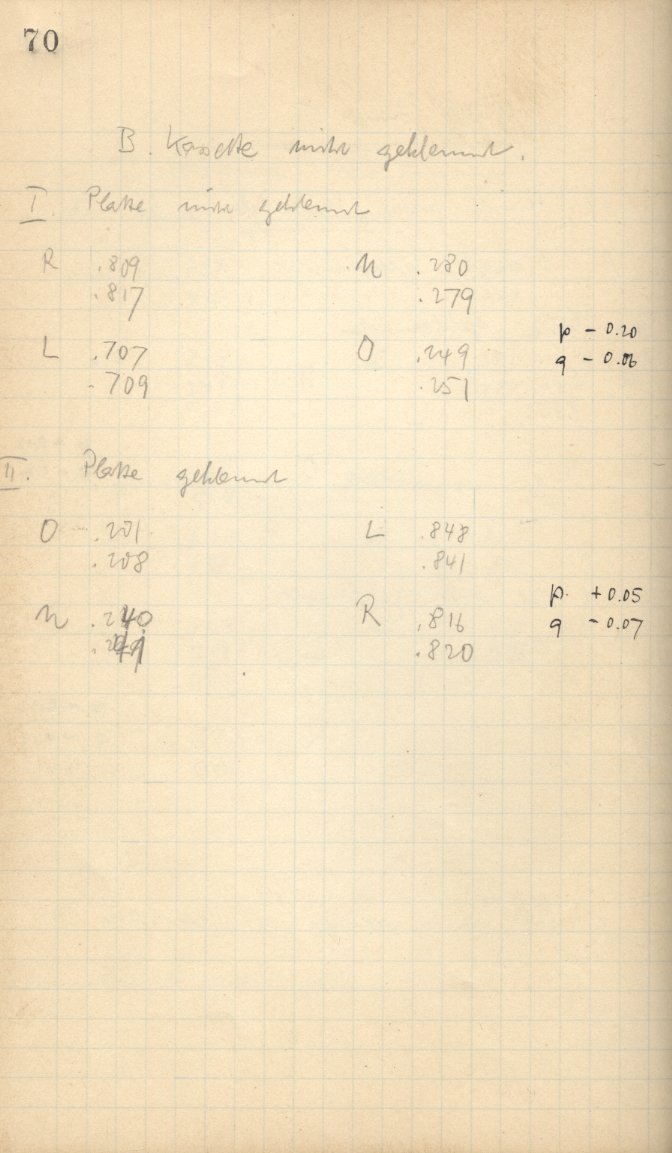 70
B. Kassette nicht geklemmt.
I Platte nicht geklemmt
R .809 U .280
.817 .279
L .707 O .249 p - 0.20
.709 .251 q - 0.06
II. Platte geklemmt
O .201 L .848
.208 .841
U .240 R .816 p. + 0.05
.820 q - 0.07